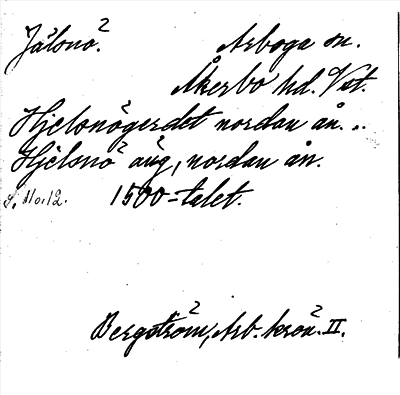 Jälsnö. Arboga sn.
Åkerbo hd. Vst.
Hjelsnögerdet nordan ån. ..
Hjelsnö äng, nordan ån.
1500-talet.
Bergström, Arb. krön. II.